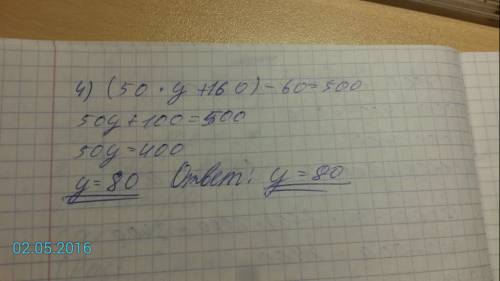 4) (50 · y + 160) - 60 = 500
50y + 100 = 500
50y = 400
y = 80 Ответ: y = 80
02.05.2016